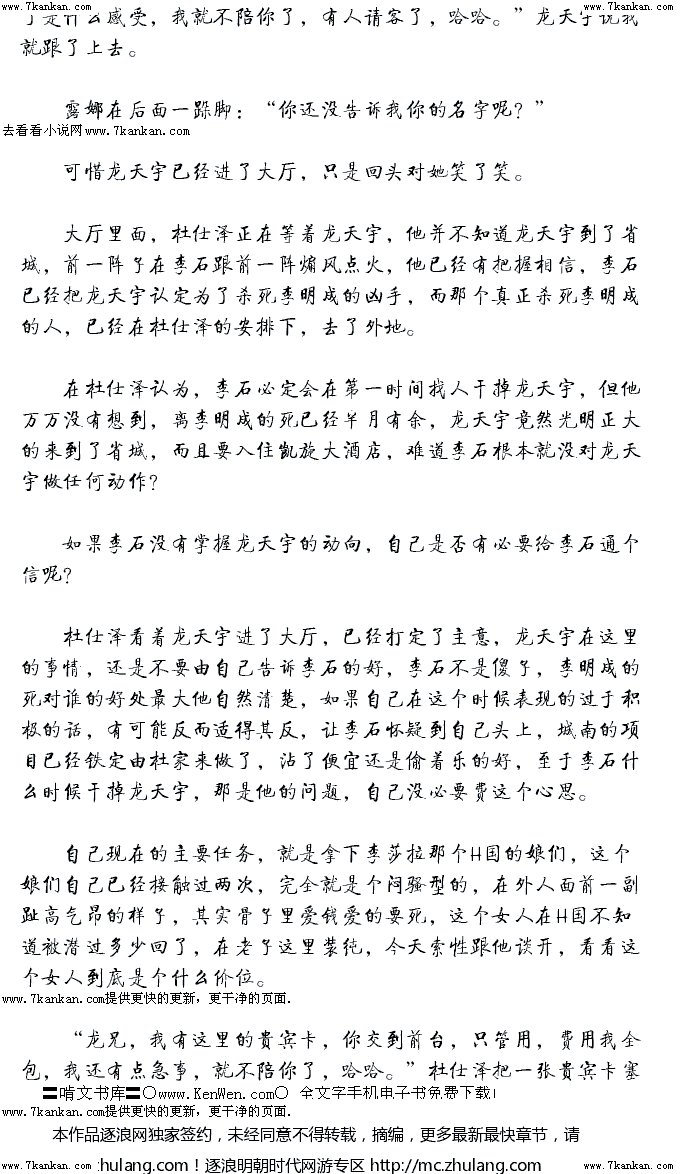 www.7kankan.com www.7kankan.com www.7kankan.com
了是什么感受，我就不陪你了，有人请客了，哈哈。”龙天宇说我
就跟了上去。
露娜在后面一跺脚：“你还没告诉我你的名字呢？”
去看看小说网www.7kankan.com
可惜龙天宇已经进了大厅，只是回头对她笑了笑。
大厅里面，杜仕泽正在等着龙天宇，他并不知道龙天宇到了省
城，前一阵子在李石跟前一阵煽风点火，他已经有把握相信，李石
已经把龙天宇认定为了杀死李明成的凶手，而那个真正杀死李明成
的人，已经在杜仕泽的安排下，去了外地。
在杜仕泽认为，李石必定会在第一时间找人干掉龙天宇，但他
万万没有想到，离李明成的死已经半月有余，龙天宇竟然光明正大
的来到了省城，而且要入住凯旋大酒店，难道李石根本就没对龙天
宇做任何动作？
如果李石没有掌握龙天宇的动向，自己是否有必要给李石通个
信呢？
杜仕泽看着龙天宇进了大厅，已经打定了主意，龙天宇在这里
的事情，还是不要由自己告诉李石的好，李石不是傻子，李明成的
死对谁的好处最大他自然清楚，如果自己在这个时候表现的过于积
极的话，有可能反而适得其反，让李石怀疑到自己头上，城南的项
目已经铁定由杜家来做了，沾了便宜还是偷着乐的好，至于李石什
么时候干掉龙天宇，那是他的问题，自己没必要费这个心思。
自己现在的主要任务，就是拿下李莎拉那个H国的娘们，这个
娘们自己已经接触过两次，完全就是个闷骚型的，在外人面前一副
趾高气昂的样子，其实骨子里爱钱爱的要死，这个女人在H国不知
道被潜过多少回了，在老子这里装纯，今天索性跟他谈开，看看这
个女人到底是个什么价位。
www.7kankan.com提供更快的更新，更干净的页面.
“龙兄，我有这里的贵宾卡，你交到前台，只管用，费用我全
包，我还有点急事，就不陪你了，哈哈。”杜仕泽把一张贵宾卡塞
〓啃文书库〓○www.KenWen.com○ 全文字手机电子书免费下载!
www.7kankan.com提供更快的更新，更干净的页面.
本作品逐浪网独家签约，未经同意不得转载，摘编，更多最新最快章节，请
www.7kankan.com zhulang.com！逐浪明朝时代网游专区 http://mc.zhulang.com www.7kankan.com